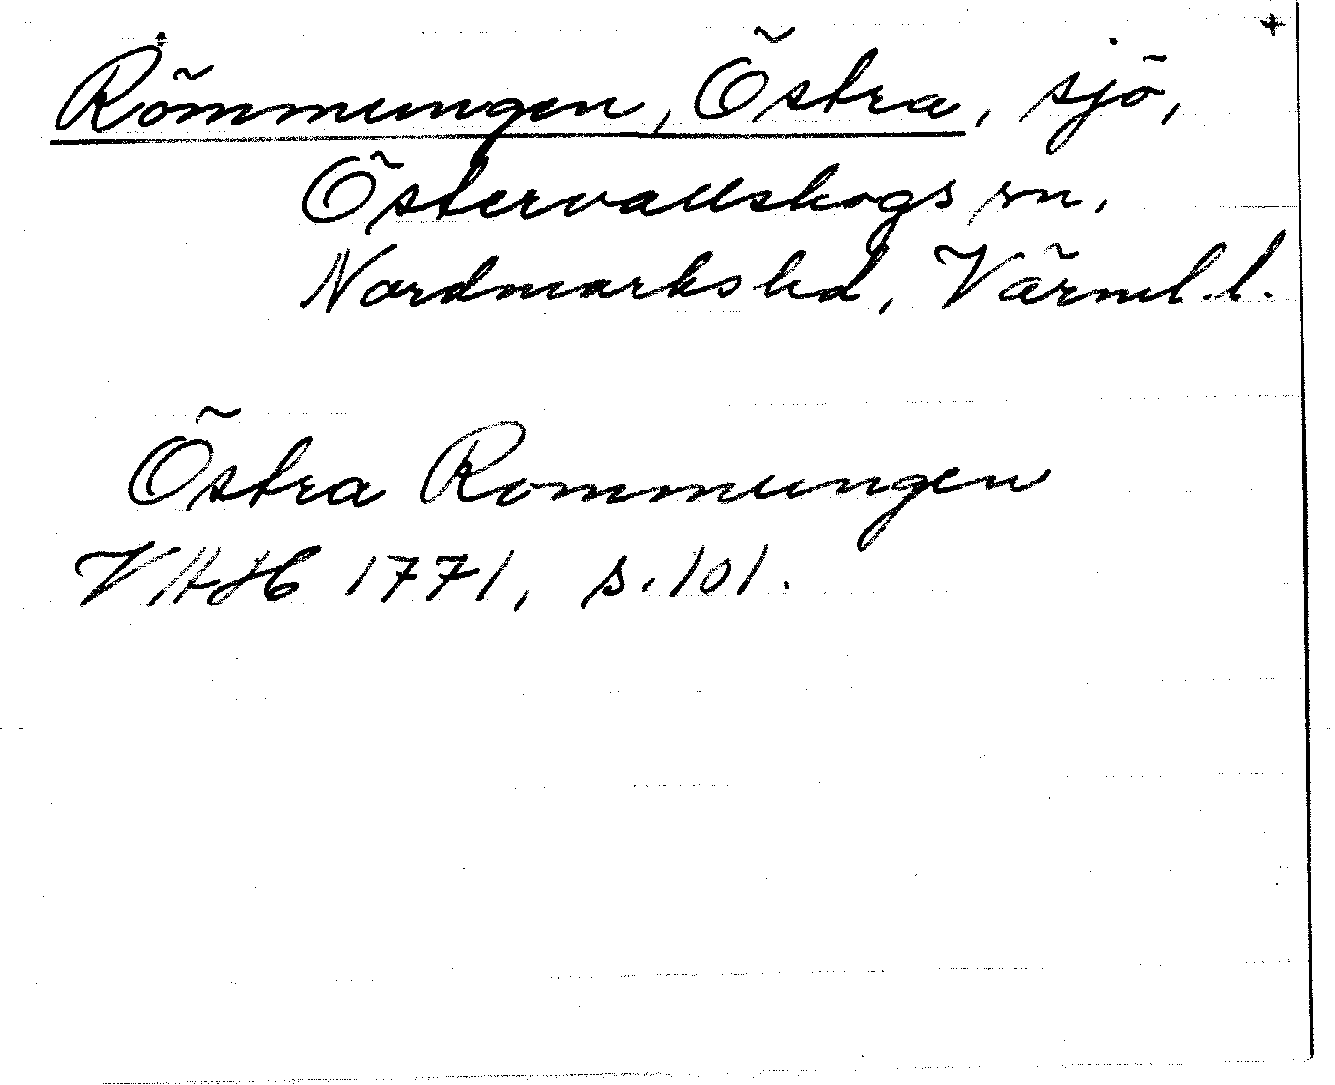 Römmungen, Östra, sjö,
Östervallskogs sn,
Nordmarks hd, Värml. l.
Östra Rommungen
VHH 1771, s. 101.